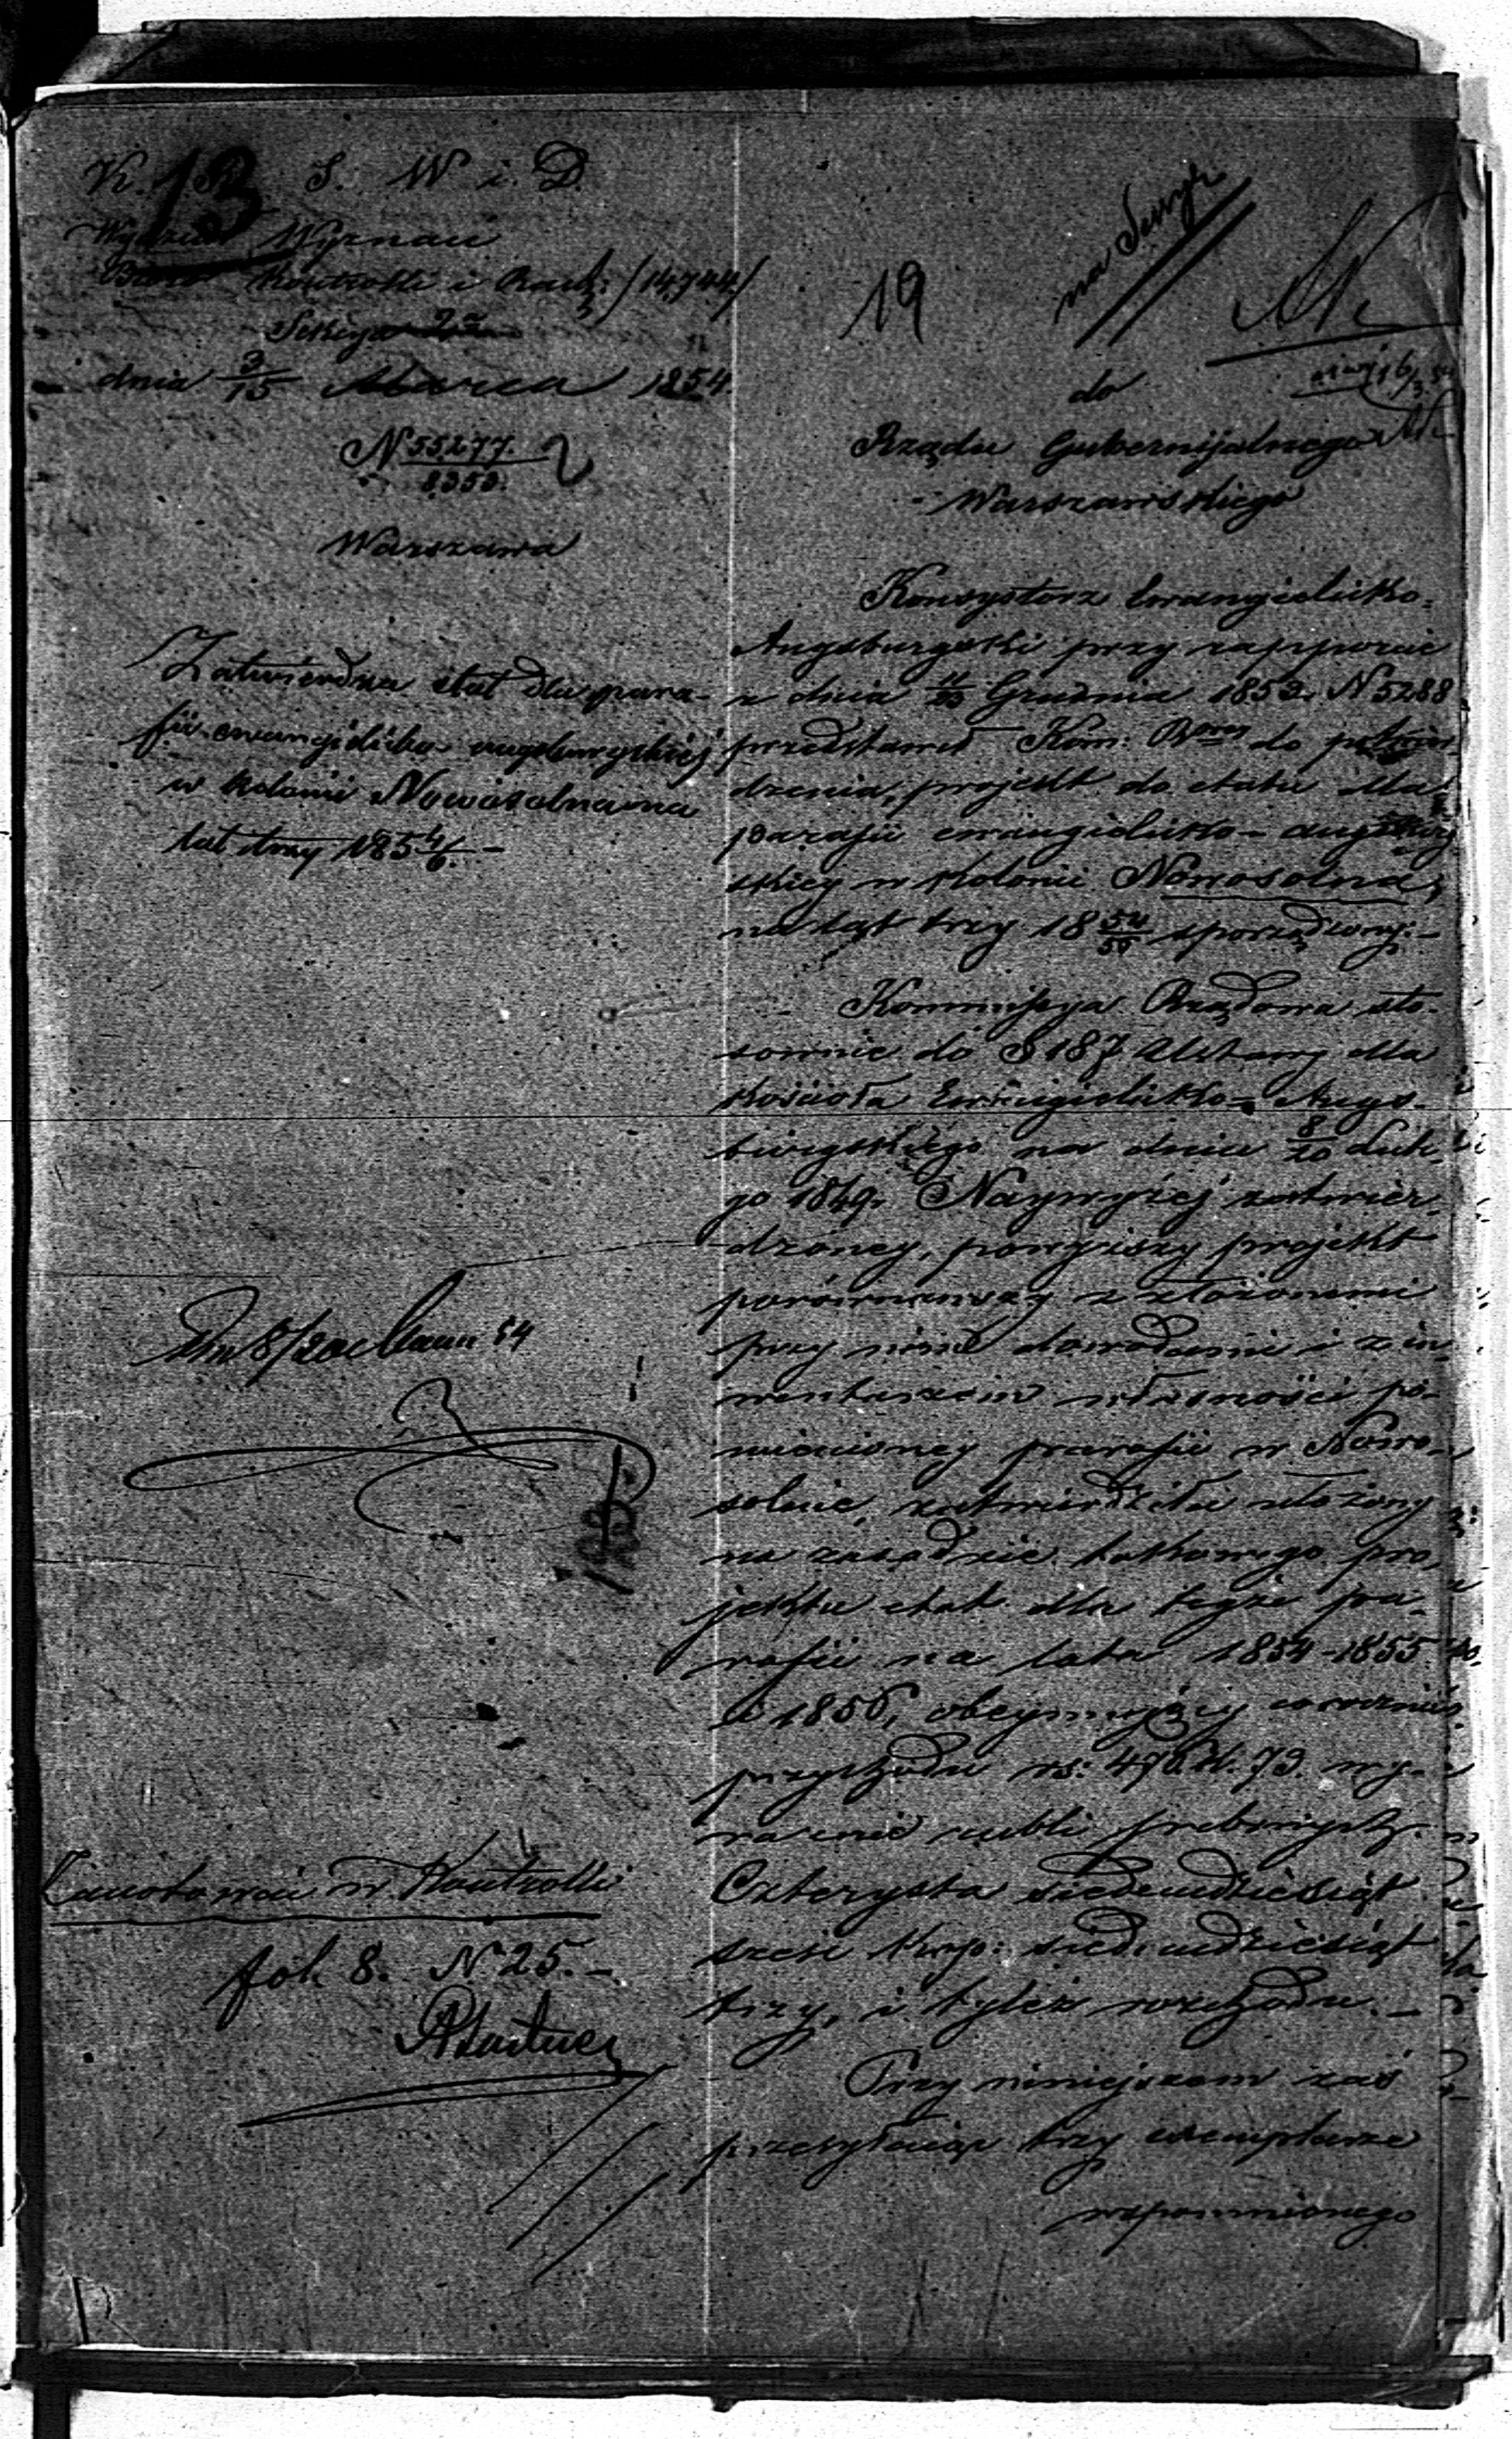 K. R. S. W i. D.
13
Wydział Wyznań
Biuro Kontrolli i Rach: /14,744/
Sekcya 2a
dnia 3/15 Marca 1854.
N 55277. / 8353.
Warszawa
Zatwierdza etat dla para-
fii ewangielicko augsburgskiéj
w kolonii Nowosolna na
lat trzy 185 4/6. -
54
Zanotowano w Kontrolli
fol. 8. N 25. -
19
na Sessyę
do
Rządu Gubernijalnego
Warszawskiego
Konsystorz Ewangielicko-
Augsburgski przy rapporcie
z dnia 11/23 Grudnia 1853. N 5288
przedstawił Kom: Rząd do potwier-
dzenia, projekt do etatu dla
parafii ewangielicko-augsburg-
skiey w kolonii Nowosolna,
na lat trzy 18 54/56 sporządzony. -
Kommissya Rządowa sto-
sownie do § 187 Ustawy dla
Kościoła Ewangielicko-Augs-
burgskiego na dniu 8/20 Lute-
go 1849. Naywyżéj zatwier-
dzoney, powyższy projekt
porównawszy z złożonemi
przy nim dowodami i z in-
wentarzem własności po-
mienioney parafii w Nowo-
solnie, zatwierdziła ułożony
na zasadzie takowego pro-
jektu etat dla teyże pa-
rafii na lata 1854-1855
i 1856, obeymujący corocznie
przychodu rs: 476 k. 73. wy-
raźnie rubli srebrnych
Czterysta siedemdziesiąt
sześć kop: siedemdziesiąt
trzy, i tyleż rozchodu. -
Przy niniejszem zaś
przesyłając trzy exemplarze
wspomnionego